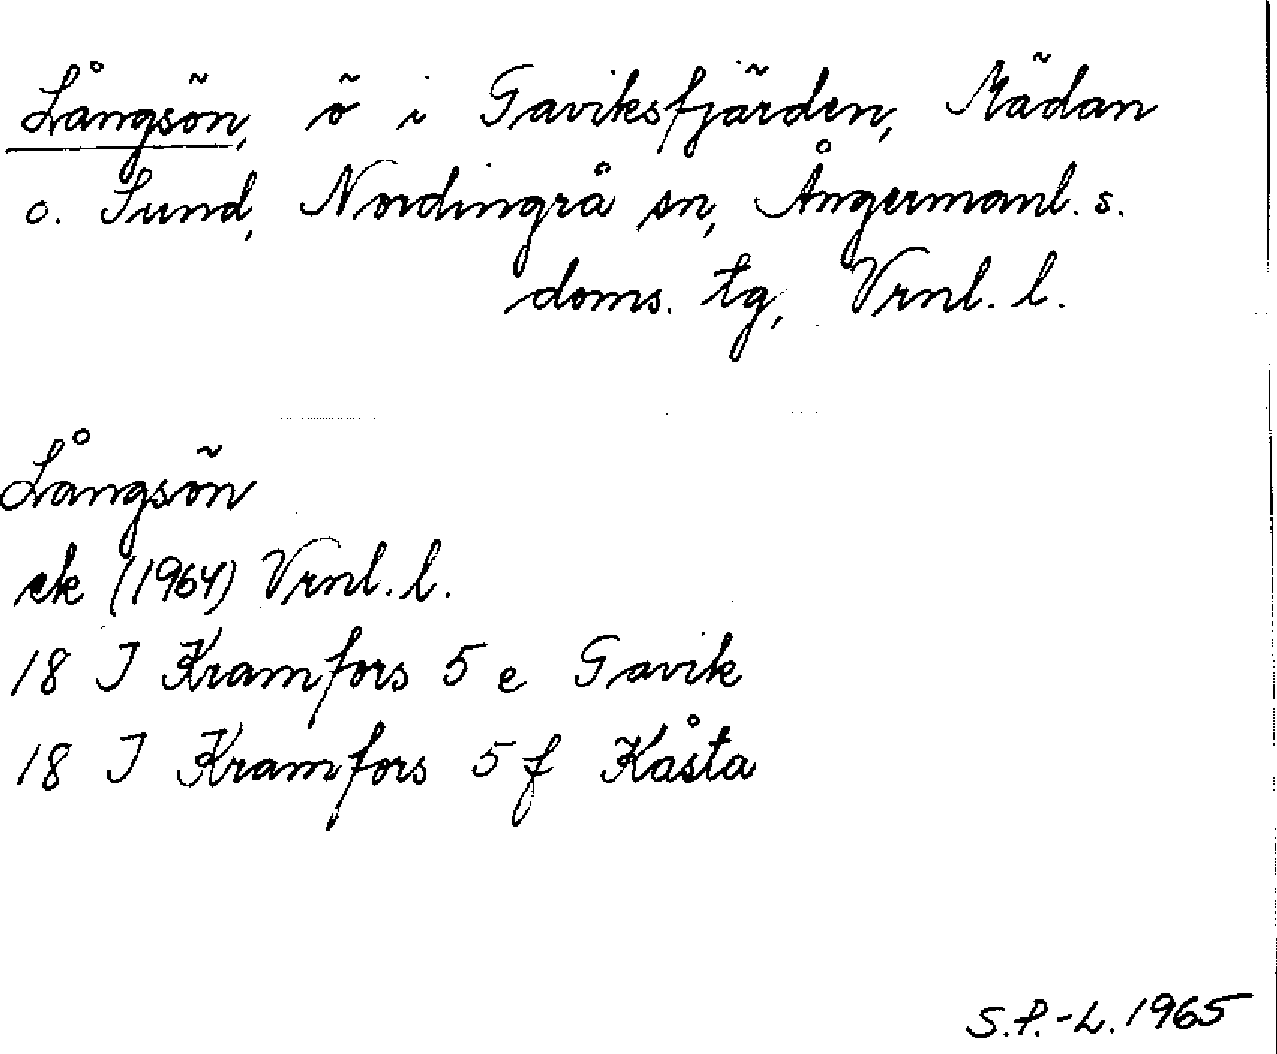 Långsön, ö i Gaviksfjärden, Mädan
o. Sund, Nordingrå sn, Ångermanl. s.
doms. tg, Vrnl. l.
Långsön
ek (1964) Vrnl. l.
18 J Kramfors 5 e Gavik
18 J Kramfors 5 f Kåsta
S.P.-L. 1965